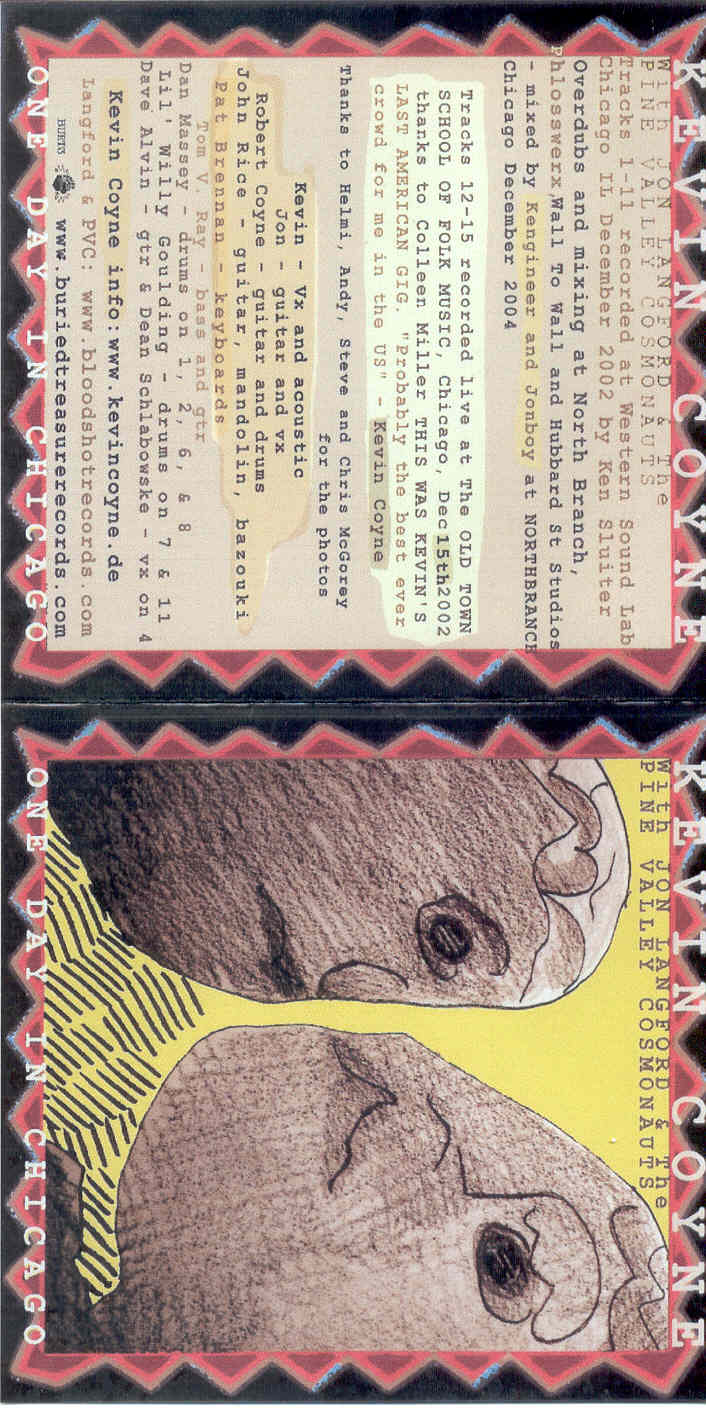 KEVIN COYNE
With JON LANGFORD & The
PINE VALLEY COSMONAUTS
Tracks 1-11 recorded at Western Sound Lab,
Chicago IL December 2002 by Ken Sluiter
Overdubs and mixing at North Branch,
Phlosswerx,Wall To Wall and Hubbard St Studios
- mixed by Kengineer and Jonboy at NORTHBRANCH
Chicago December 2004
Tracks 12-15 recorded live at The OLD TOWN
SCHOOL OF FOLK MUSIC, Chicago, Dec15th2002
thanks to Colleen Miller THIS WAS KEVIN'S
LAST AMERICAN GIG. "Probably the best ever
crowd for me in the US" - Kevin Coyne
Thanks to Helmi, Andy, Steve and Chris McGorey
for the photos
Kevin - Vx and acoustic
Jon - guitar and vx
Robert Coyne - guitar and drums
John Rice - guitar, mandolin, bazouki
Pat Brennan - keyboards
Tom V. Ray - bass and gtr
Dan Massey - drums on 1, 2, 6, & 8
Lil' Willy Goulding - drums on 7 & 11
Dave Alvin - gtr & Dean Schlabowske - vx on 4
Kevin Coyne info:www.kevincoyne.de
Langford & PVC: www.bloodshotrecords.com
BURTSS www.buriedtreasurerecords.com
ONE DAY IN CHICAGO
KEVIN COYNE
With JON LANGFORD & The
PINE VALLEY COSMONAUTS
ONE DAY IN CHICAGO